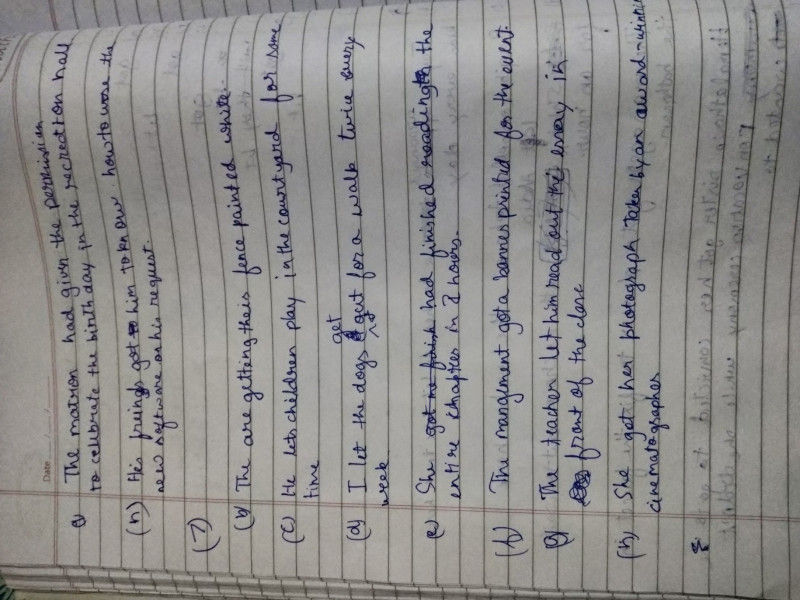 Date
g) The matron had given the permission
to celebrate the birthday in the recreation hall
(h) His friends got him to know how to use the
new software on his request.
(7)
(b) The are getting their fence painted white.
(c) He lets children play in the courtyard for some
time
(d) I let the dogs get out for a walk twice every
week
e) She had finished reading the
entire chapter in 2 hours.
(f) The mangment got a banner printed for the event.
g) The teacher let him read out the essay in
front of the class
(h) She got her photograph taken by an award-winnin
cinematographer